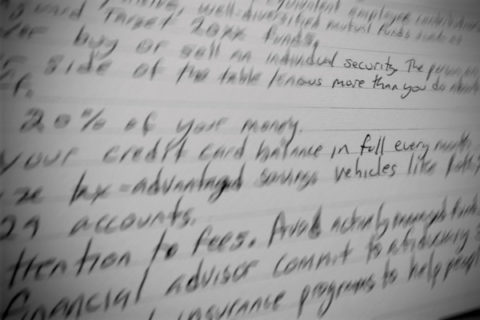 equivalent employee contribution
well-diversified mutual funds such as
ward Target 20XX funds.
buy or sell an individual security. The person on
side of the table knows more than you do about
20% of your money.
your credit card balance in full every month
tax-advantaged savings vehicles like
accounts.
ttention to fees. Avoid actively managed funds.
financial advisor commit to a fiduciary
insurance programs to help people